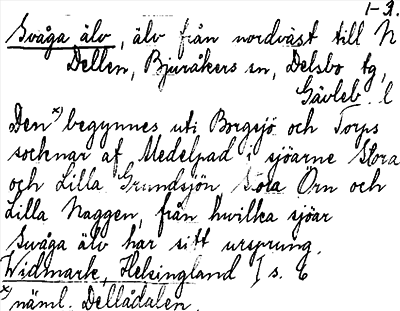 1-3.
Svåga älv, älv från nordväst till N
Dellen, Bjuråkers sn, Delsbo tg,
Gävleb. l
Den x) begynnes uti Borgsjö och Torps
socknar af Medelpad i sjöarne Stora
och Lilla Grundsjön Stora Örn och
Lilla Naggen, från hwilka sjöar
Svåga älv har sitt ursprung.
Widmark, Helsingland I s. 6
x) näml. Dellådalen.